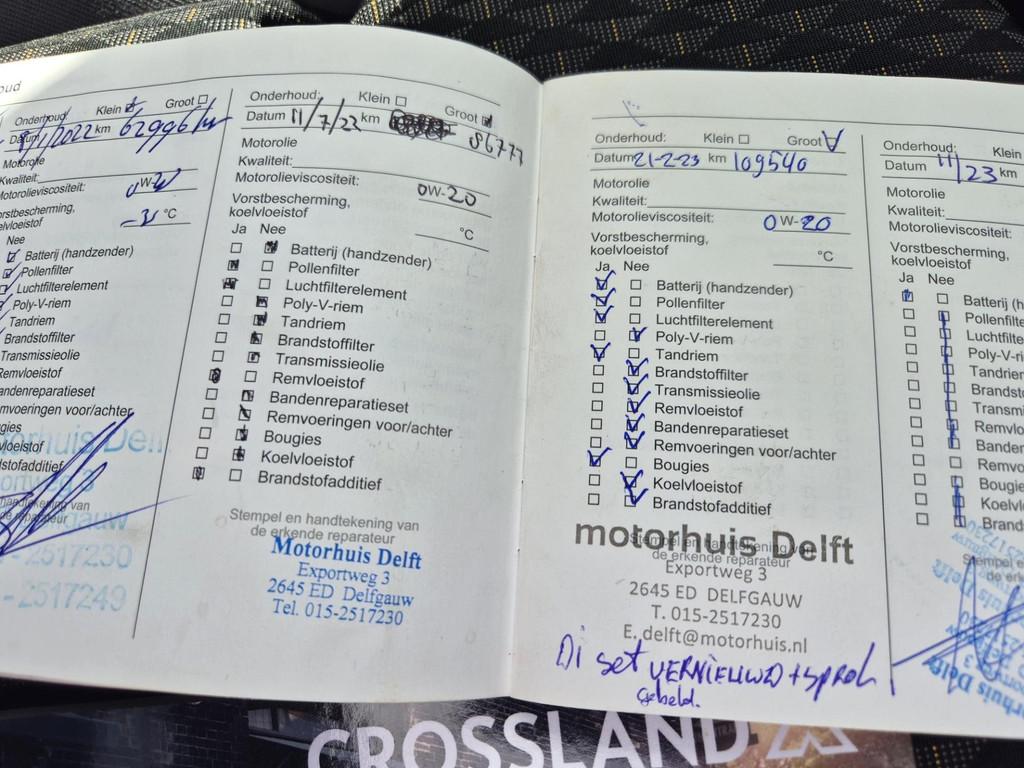 oud
Onderhoud: Klein Groot
Datum 2022 km 62996
Motorolie
Kwaliteit:
Motorolieviscositeit:
W-
Vorstbescherming,
koelvloeistof
°C
Nee
Batterij (handzender)
Pollenfilter
Luchtfilterelement
Poly-V-riem
Tandriem
Brandstoffilter
Transmissieolie
Remvloeistof
Bandenreparatieset
Remvoeringen voor/achter
Bougies
Koelvloeistof
Brandstofadditief
Motorhuis Delft
Exportweg 3
Delfgauw
- 2517230
- 2517249
Onderhoud: Klein Groot
Datum 11/7/22 km 86777
Motorolie
Kwaliteit:
Motorolieviscositeit: 0W-20
Vorstbescherming,
koelvloeistof °C
Ja Nee
Batterij (handzender)
Pollenfilter
Luchtfilterelement
Poly-V-riem
Tandriem
Brandstoffilter
Transmissieolie
Remvloeistof
Bandenreparatieset
Remvoeringen voor/achter
Bougies
Koelvloeistof
Brandstofadditief
Stempel en handtekening van
de erkende reparateur
Motorhuis Delft
Exportweg 3
2645 ED Delfgauw
Tel. 015-2517230
Onderhoud: Klein Groot
Datum 21-2-23 km 109540
Motorolie
Kwaliteit:
Motorolieviscositeit: 0W-20
Vorstbescherming,
koelvloeistof °C
Ja Nee
Batterij (handzender)
Pollenfilter
Luchtfilterelement
Poly-V-riem
Tandriem
Brandstoffilter
Transmissieolie
Remvloeistof
Bandenreparatieset
Remvoeringen voor/achter
Bougies
Koelvloeistof
Brandstofadditief
Stempel en handtekening van
de erkende reparateur
motorhuis Delft
Exportweg 3
2645 ED DELFGAUW
T. 015-2517230
E. delft@motorhuis.nl
Di set VERNIEUWD +
gebeld.
Onderhoud: Klein
Datum 11/23 km
Motorolie
Kwaliteit:
Motorolieviscositeit:
Vorstbescherming,
koelvloeistof
Ja Nee
Batterij (h
Pollenfilte
Luchtfilte
Poly-V-ri
Tandrien
Brandsto
Transmi
Remvlo
Banden
Remvo
Bougie
Koelvl
Brands
Stempel e
CROSSLAND X